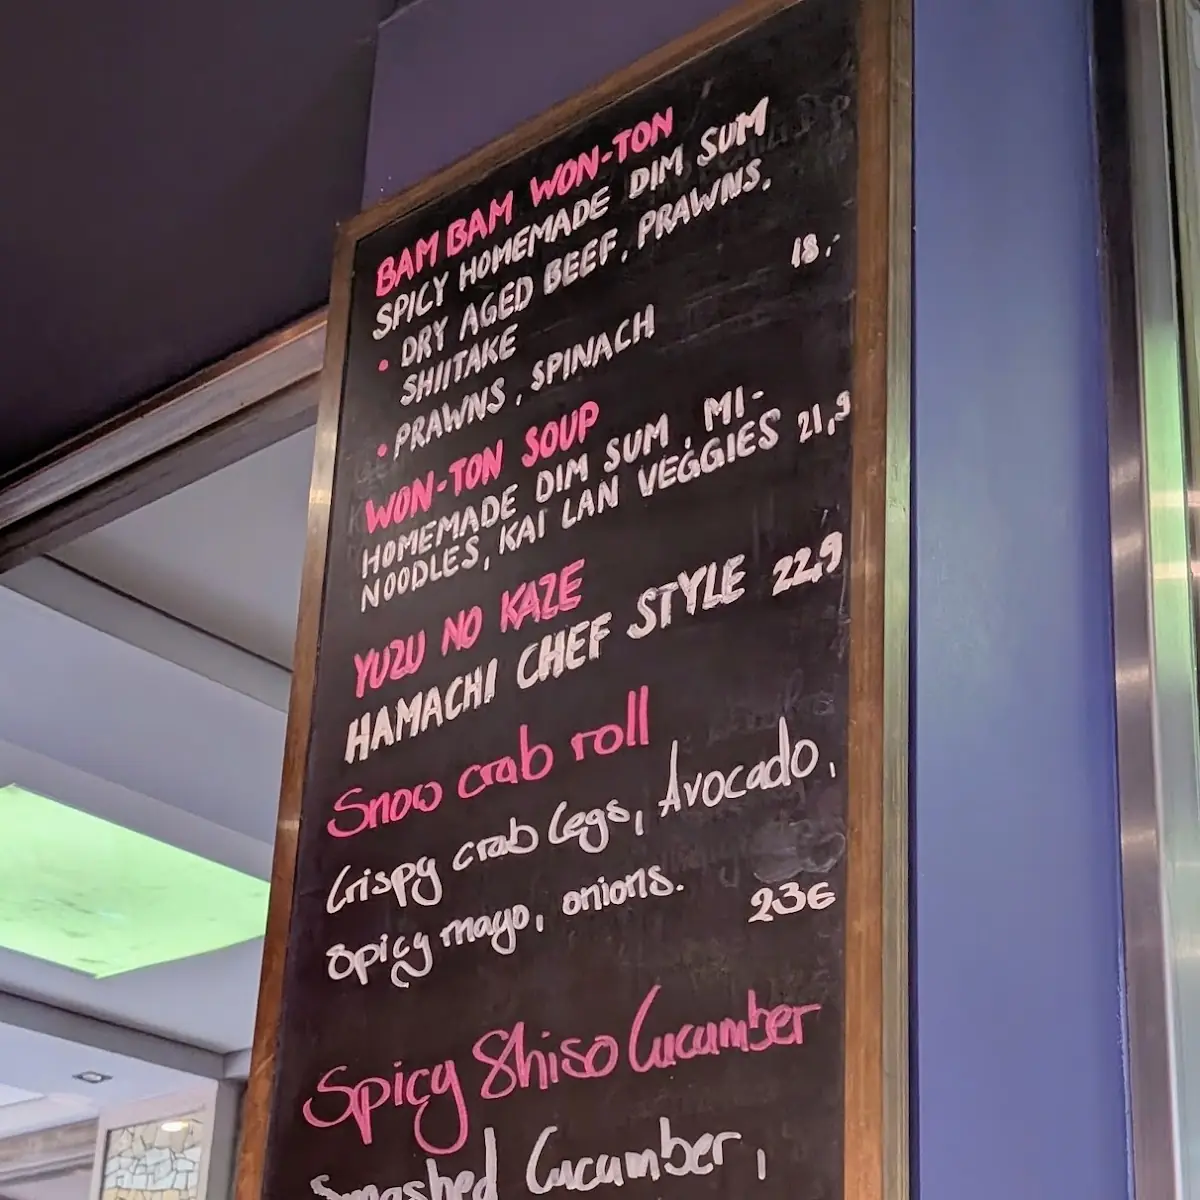 BAM BAM WON-TON
SPICY HOMEMADE DIM SUM
• DRY AGED BEEF, PRAWNS,
SHIITAKE 18,-
• PRAWNS, SPINACH
WON-TON SOUP
HOMEMADE DIM SUM, MI-
NOODLES, KAI LAN VEGGIES 21,9
YUZU NO KAZE
HAMACHI CHEF STYLE 22,9
Snow crab roll
Crispy crab legs, Avocado,
spicy mayo, onions.
23€
Spicy Shiso Cucumber
Smashed Cucumber,